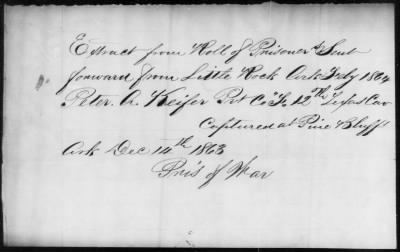 Extract from Roll of Prisoners Sent
forward from Little Rock Ark Feby 1864
Peter. A. Keifer Pvt Co 12th Texas Cav
Captured at Pine Bluff
Ark Dec 14th 1863
Pris of War